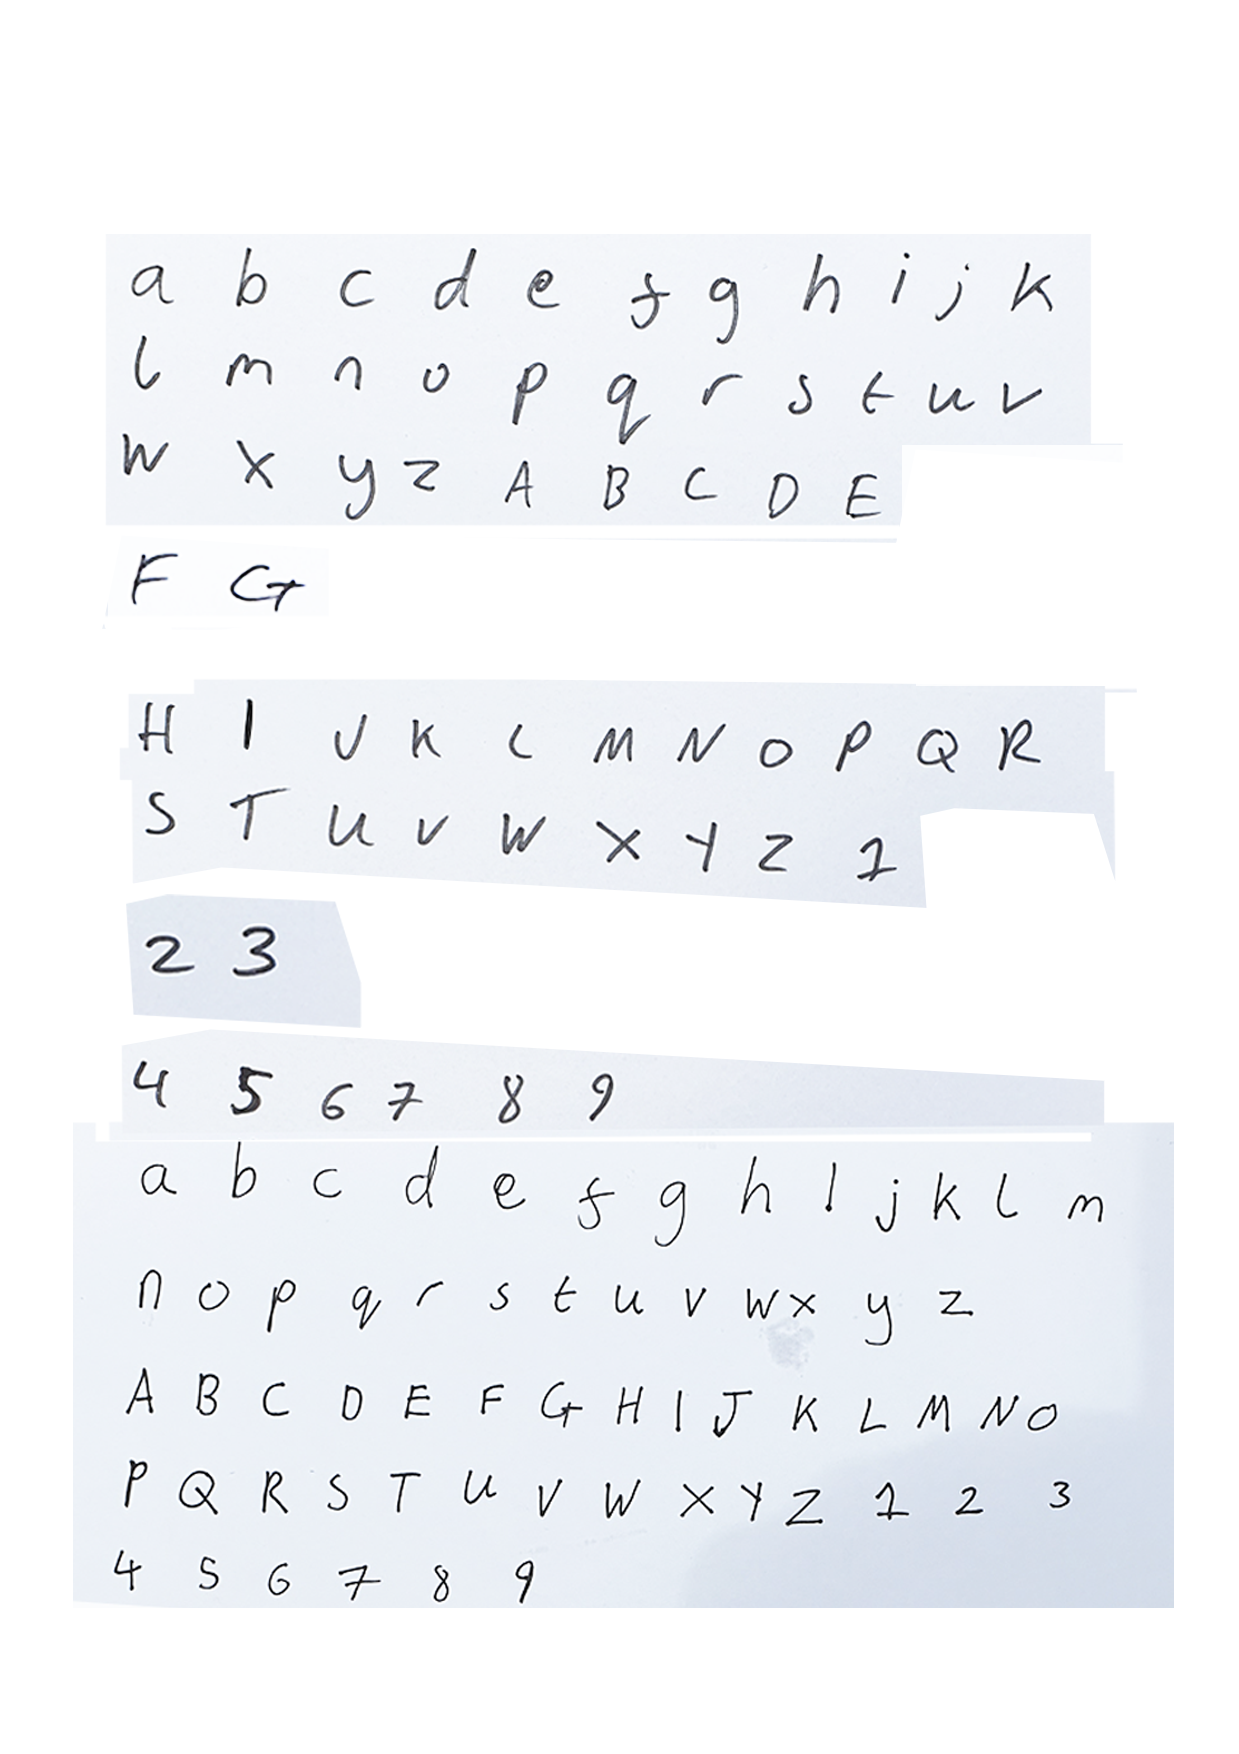 a b c d e f g h i j k
l m n o p q r s t u v
w x y z A B C D E
F G
H I J K L M N O P Q R
S T U V W X Y Z 1
2 3
4 5 6 7 8 9
a b c d e f g h i j k l m
n o p q r s t u v w x y z
A B C D E F G H I J K L M N O
P Q R S T U V W X Y Z 1 2 3
4 5 6 7 8 9